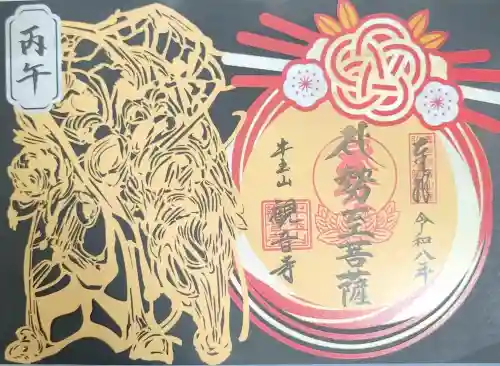 丙午
令和八年
勢至菩薩
牛玉山
観音寺